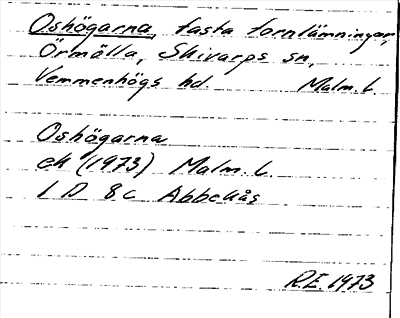 Oshögarna, fasta fornlämningar,
Örmölla, Skivarps sn,
Vemmenhögs hd. Malm. L
Oshögarna
ek (1973) Malm. L.
1 D 8c Abbekås
R.E. 1973